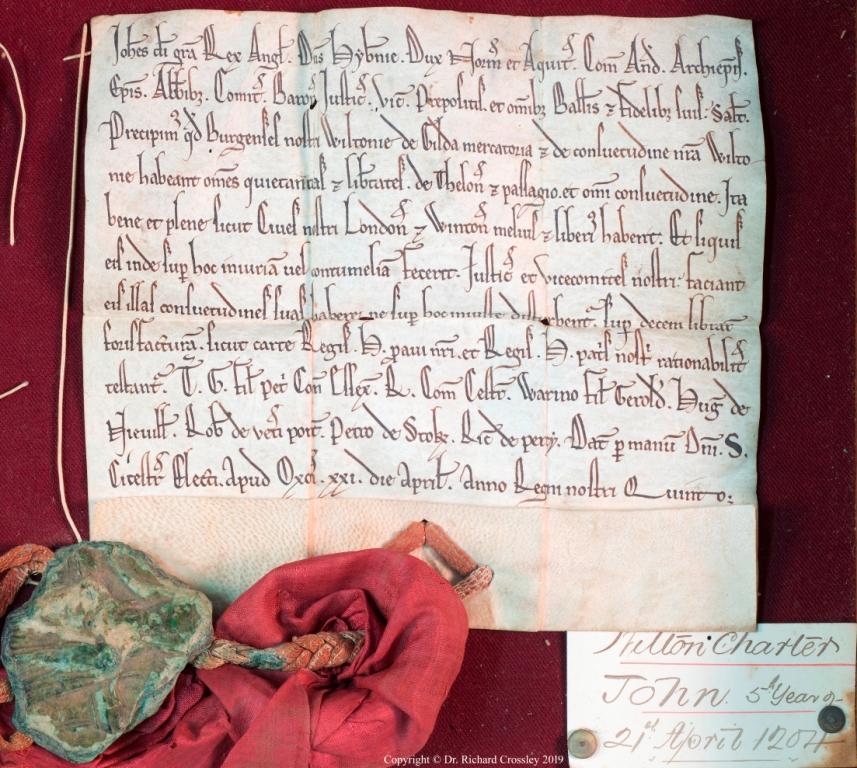 Johes di gra Rex Angl. Dns Hybnie. Dux Norm et Aquit. Com And. Archiepis.
Epis. Abbibz. Comit. Baron Justic. Vic. Prepositis. et omibz Ballis ⁊ fidelibz suis. Salt.
Precipim qd Burgenses nostri Wiltonie de Gilda mercatoria ⁊ de consuetudine nra Wilto
nie habeant omes quietantias ⁊ libtates. de Thelon ⁊ passagio. et omi consuetudine. Ita
bene et plene sicut Ciues nostri London ⁊ Winton melius ⁊ liberi habent. Et siquis
eis inde sup hoc iniuriā uel contumeliā fecerit. Justic et vicecomites nostri faciant
eis illas consuetudines suas habere. ne sup hoc iniuste disturbent. sup decem librar
forisfacturā. sicut carte Regis. H. proaui nri. et Regis. H. patris nostri rationabilit
testant. T. G. fil pet Com Essex. R. Com Cestr. Warino fil Gerold. Hug de
Neuill. Rob de veti pont. Petro de Stok. Ric de . Dat p manū Dni. S.
Cicestr Electi. Apud Oxon. xxi. die April. Anno Regni nostri Quinto.
Wilton Charter
John 5th Year of
21st April 1204
Copyright © Dr. Richard Crossley 2019